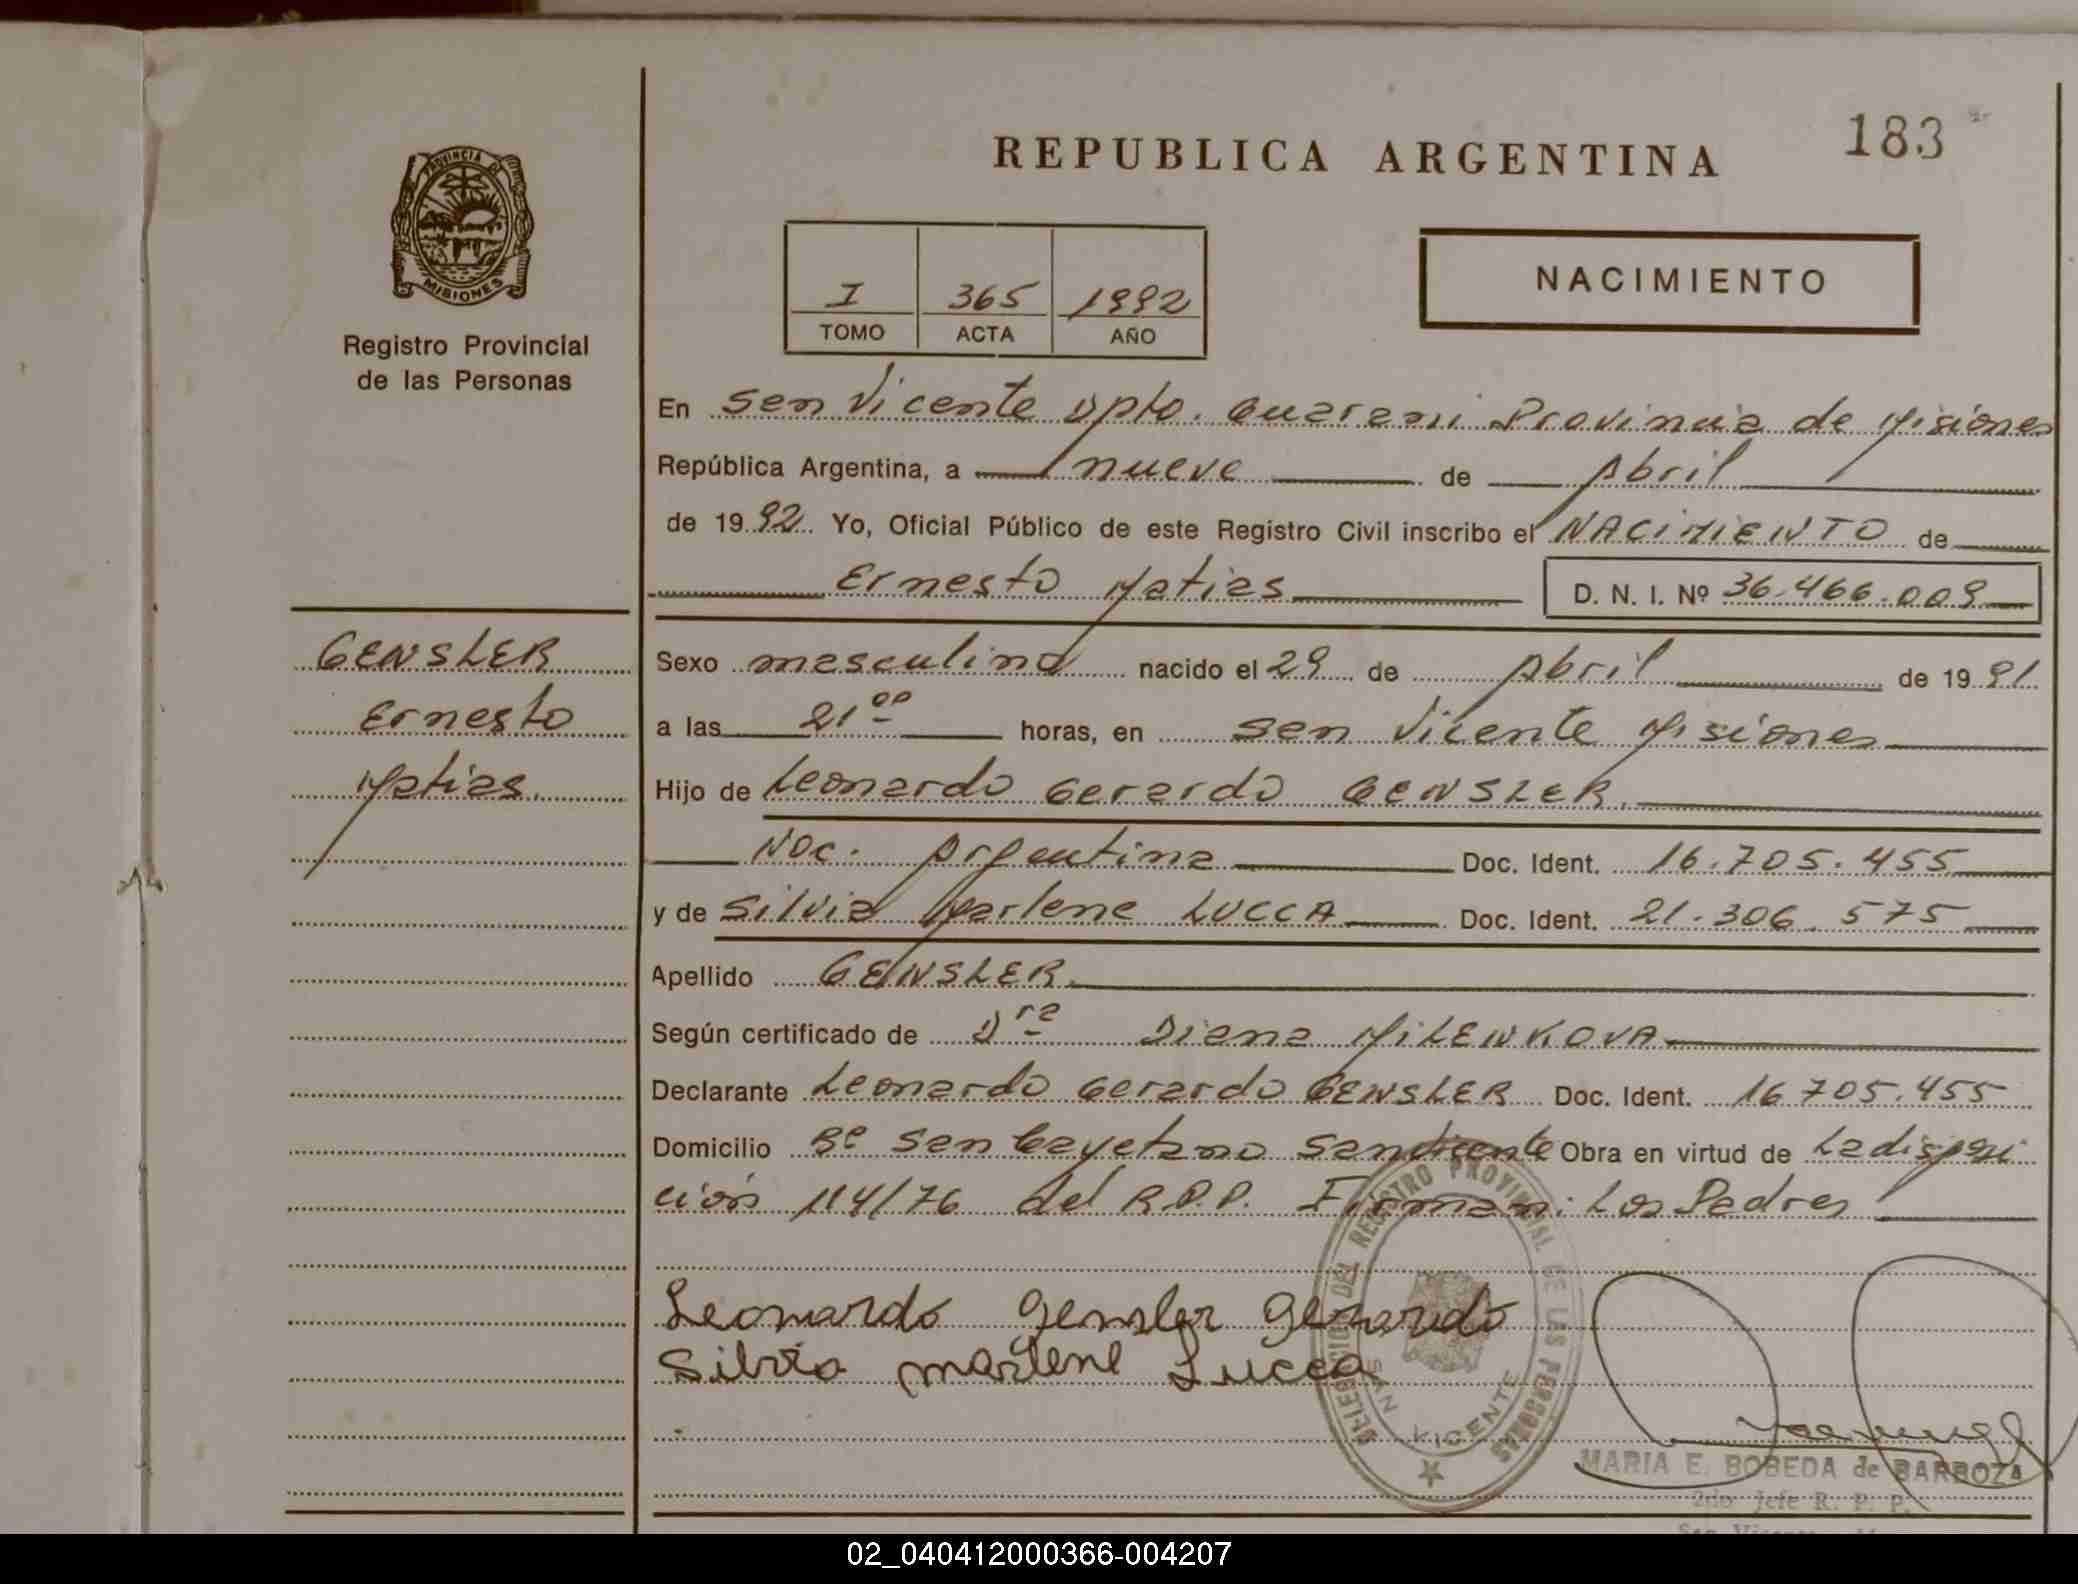 183
REPUBLICA ARGENTINA
PROVINCIA DE
MISIONES
Registro Provincial
de las Personas
NACIMIENTO
I 365 1992
TOMO ACTA AÑO
En San Vicente Dpto. Guarani Provincia de Misiones
República Argentina, a nueve de Abril
de 1992 Yo, Oficial Público de este Registro Civil inscribo el NACIMIENTO de
Ernesto Matias D. N. I. Nº 36.466.009
GENSLER
Ernesto
Matias
Sexo masculino nacido el 29 de Abril de 1991
a las 21 oo horas, en San Vicente Misiones
Hijo de Leonardo Gerardo GENSLER
Nac. Argentina Doc. Ident. 16.705.455
y de Silvia Marlene LUCCA Doc. Ident. 21.306.575
Apellido GENSLER
Según certificado de Dra Diana MILENKOVA
Declarante Leonardo Gerardo GENSLER Doc. Ident. 16.705.455
Domicilio Bº San Cayetano San Vicente Obra en virtud de La disposi
ción 114/76 del R.P.P. Firman: Los Padres
Leonardo Gensler Gerardo
Silvia marlene Lucca
DELEGACION DEL REGISTRO PROVINCIAL DE LAS PERSONAS
SAN VICENTE
MARIA E. BOBEDA de BARBOZA
2do. Jefe R. P. P.
San Vicente
02_040412000366-004207